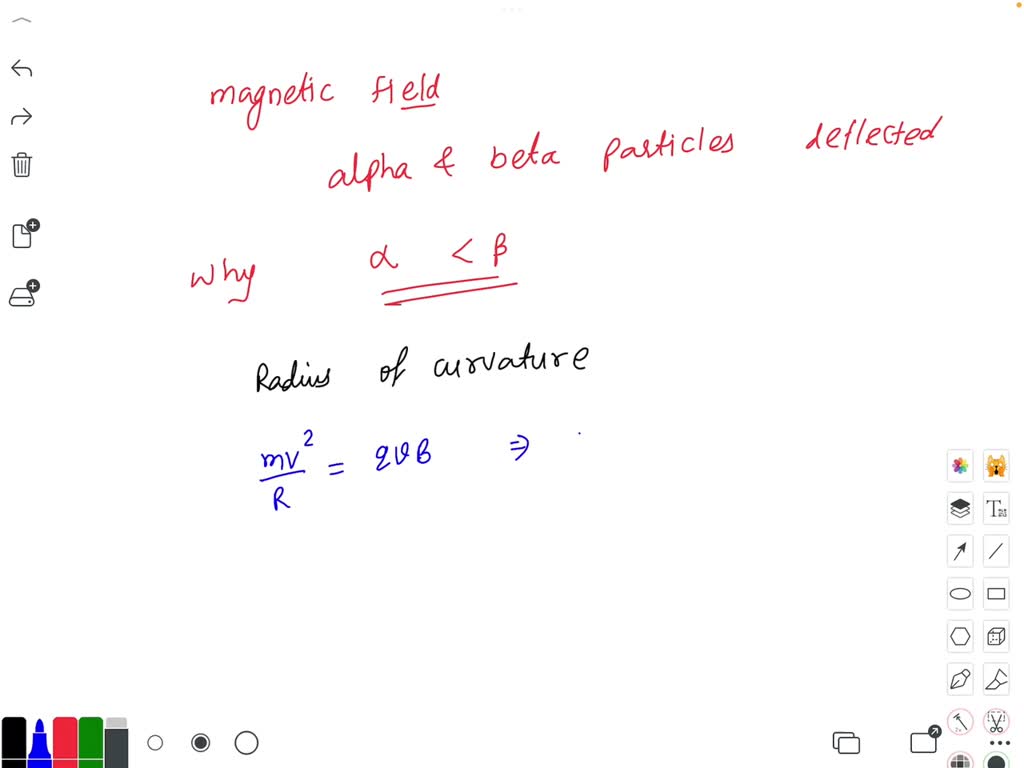 magnetic field
alpha & beta particles deflected
Why α < β
Radius of curvature
mv² / R = qvB ⇒